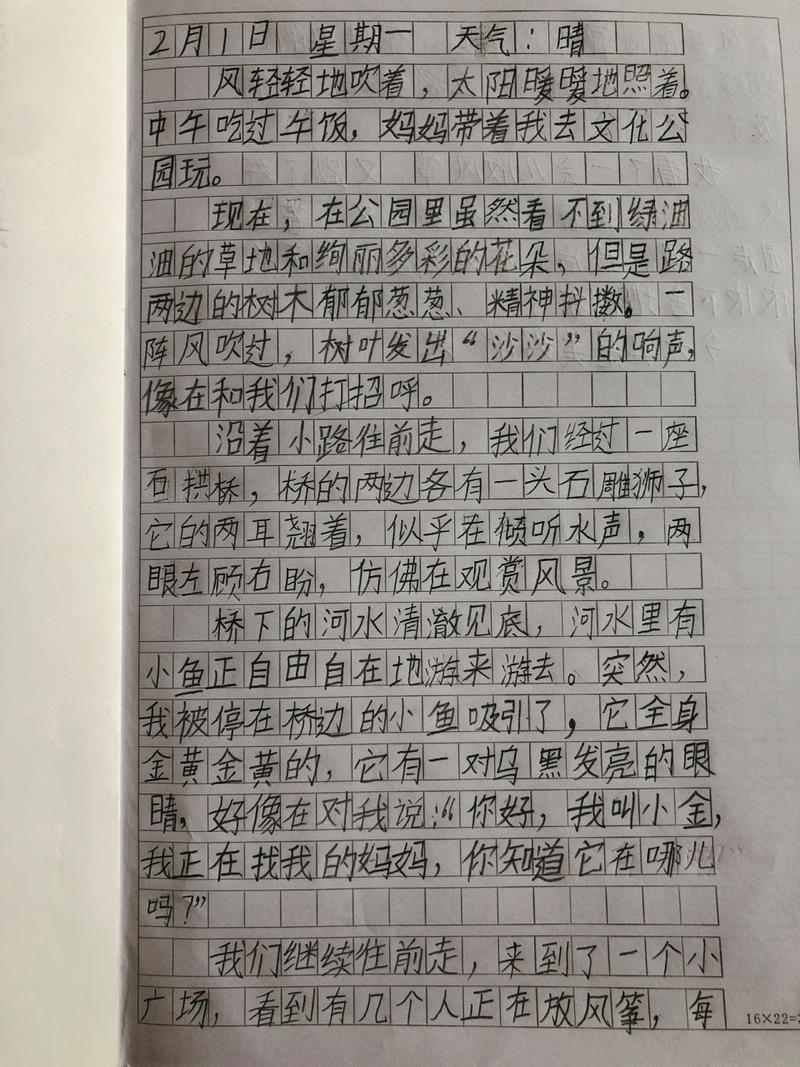 2月1日 星期一 天气:晴
风轻轻地吹着,太阳暖暖地照着。
中午吃过午饭,妈妈带着我去文化公
园玩。
现在,在公园里虽然看不到绿油
油的草地和绚丽多彩的花朵,但是路
两边的树木郁郁葱葱、精神抖擞。一
阵风吹过,树叶发出“沙沙”的响声,
像在和我们打招呼。
沿着小路往前走,我们经过一座
石拱桥,桥的两边各有一头石雕狮子,
它的两耳翘着,似乎在倾听水声,两
眼左顾右盼,仿佛在观赏风景。
桥下的河水清澈见底,河水里有
小鱼正自由自在地游来游去。突然,
我被停在桥边的小鱼吸引了,它全身
金黄金黄的,它有一对乌黑发亮的眼
睛,好像在对我说:“你好,我叫小金,
我正在找我的妈妈,你知道它在哪儿
吗?”
我们继续往前走,来到了一个小
广场,看到有几个人正在放风筝,每
16×22=3